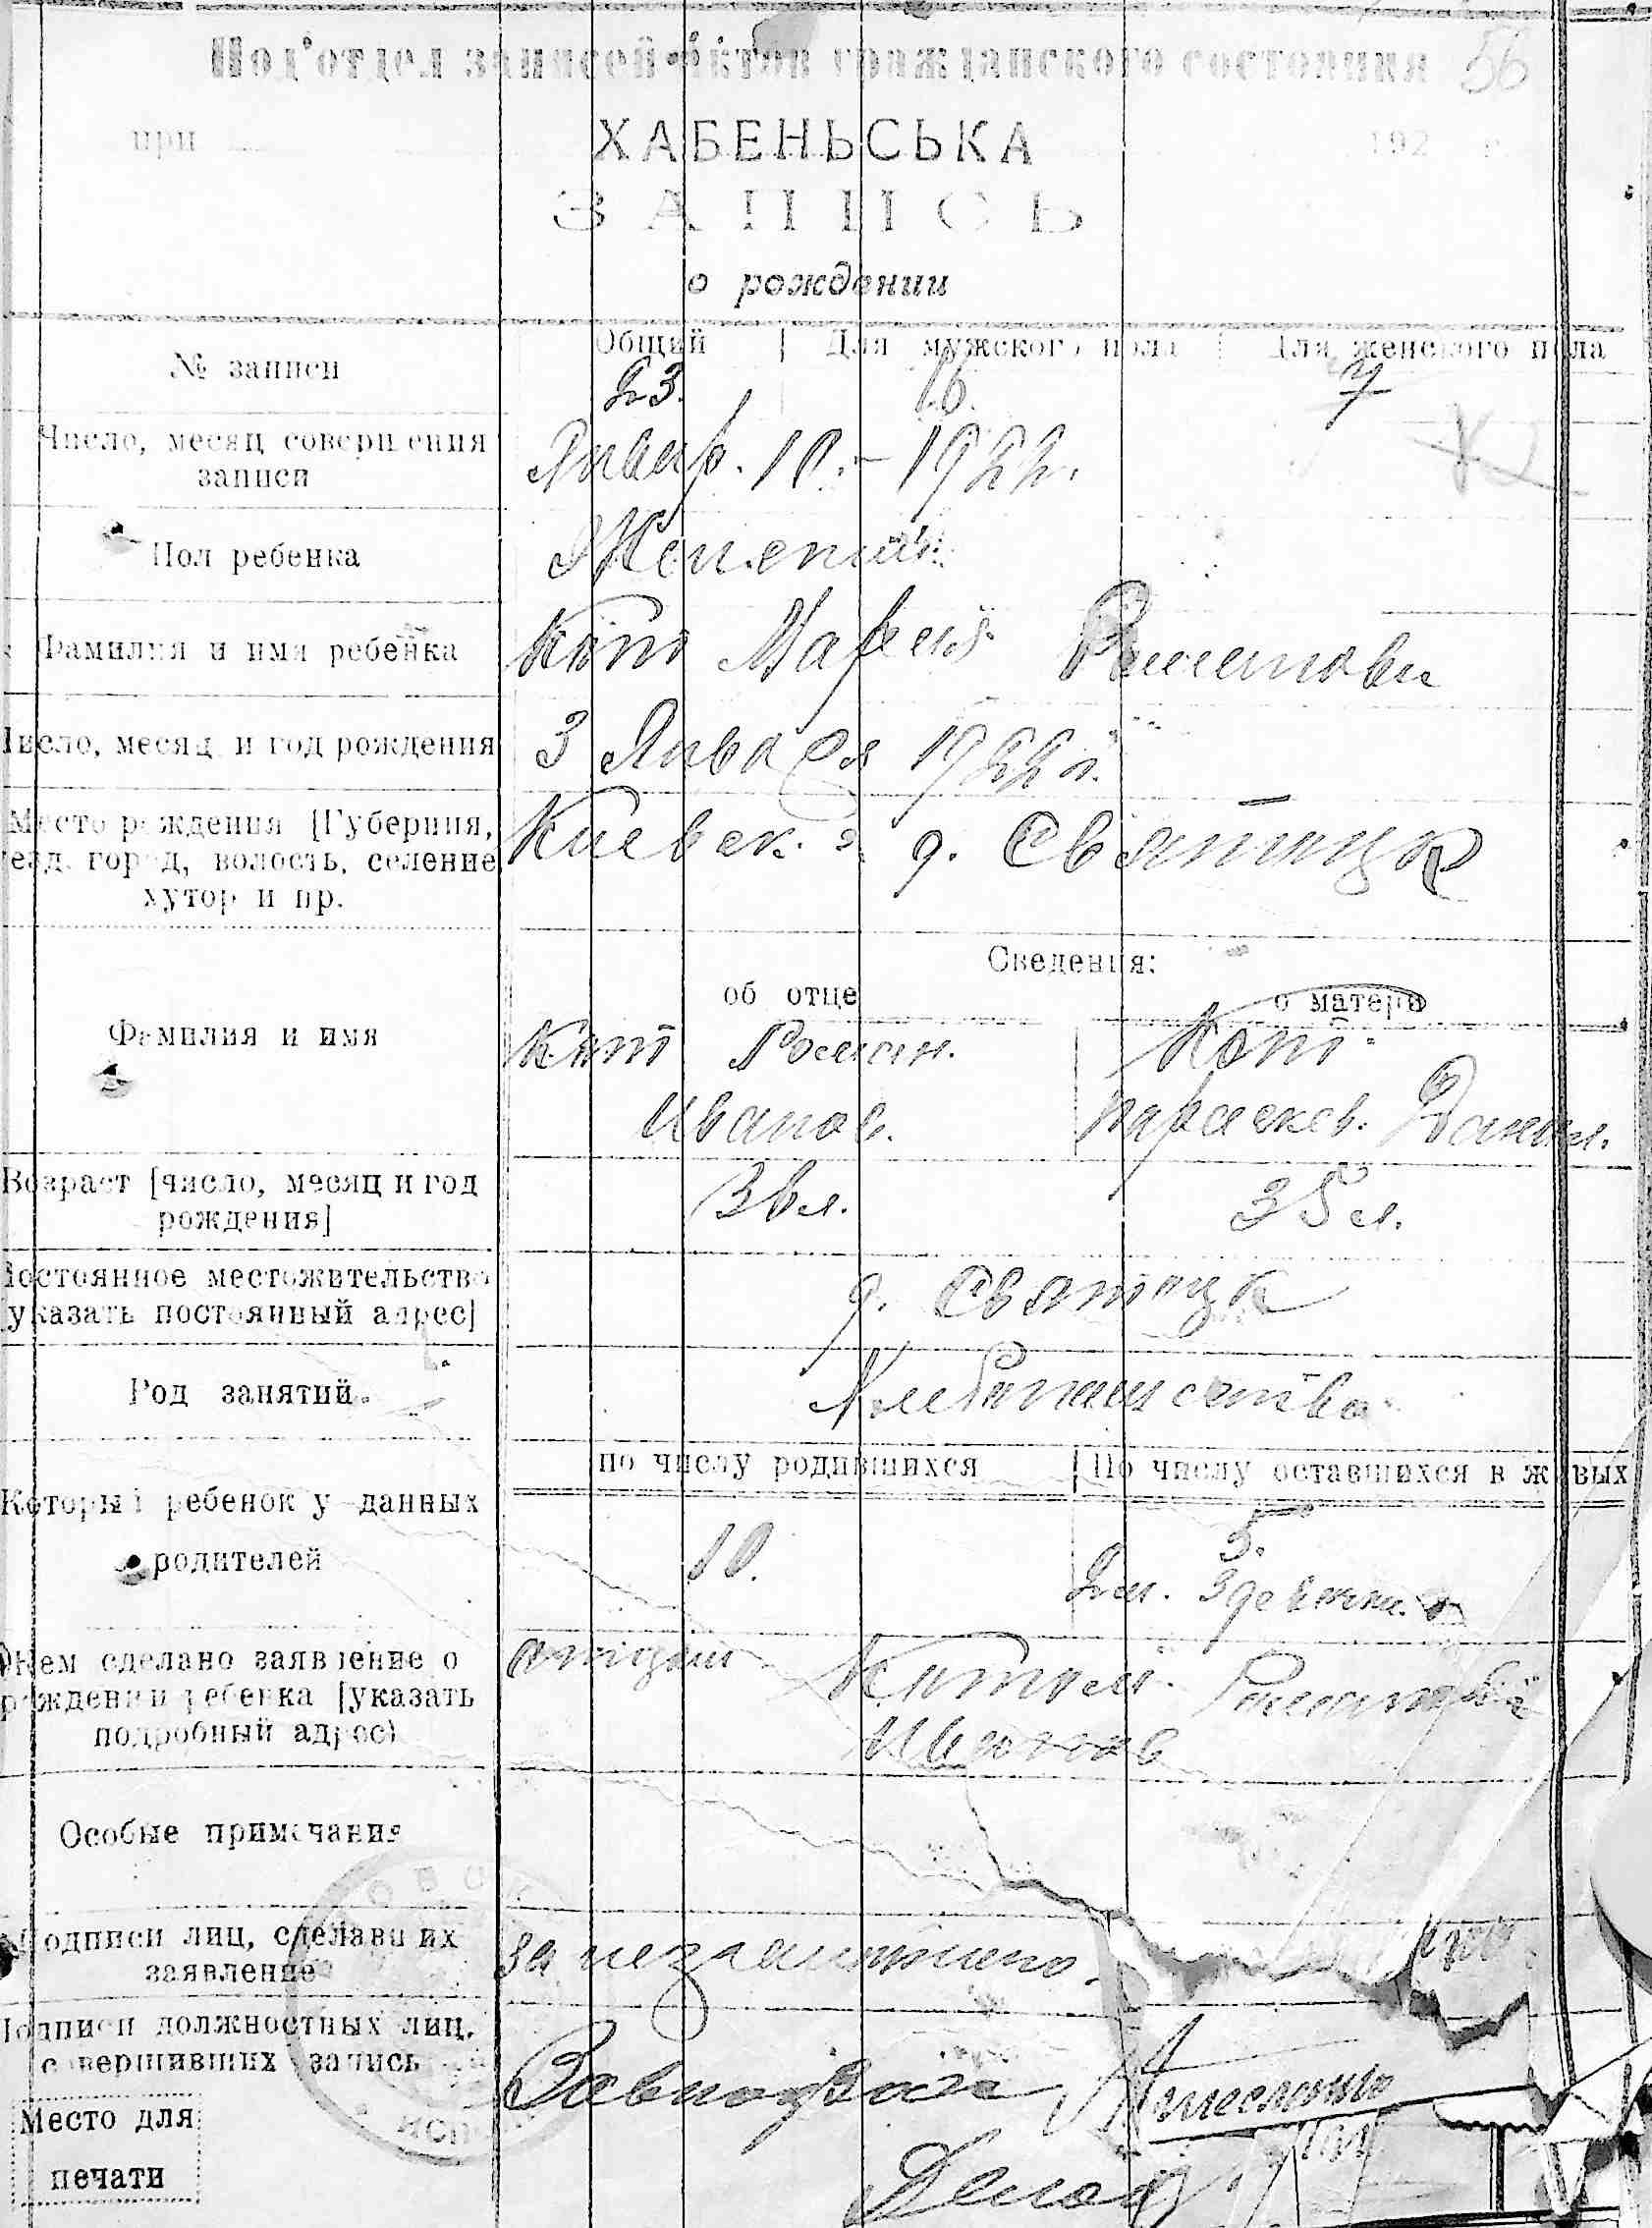 Под'отдел записей актов гражданского состояния 56
при ХАБЕНЬСЬКА 192 г.
ЗАПИСЬ
о рождении
Общий | Для мужского пола | Для женского пола
№ записи 23. 16. 7
Число, месяц совершения
записи
Январ. 10. - 1922.
Пол ребенка Женский
Фамилия и имя ребенка Кот Мария Романовн
Число, месяц и год рождения 3 Января 1922 г.
Место рождения [Губерния,
уезд, город, волость, селение
хутор и пр.
Киевск. г. д. Святицк
Сведения:
об отце о матери
Фамилия и имя
Кот Роман. Кот
Иванов. Параскев. Данил.
Возраст [число, месяц и год
рождения]
36 л. 35 л.
Постоянное местожительство
[указать постоянный адрес]
д. Святицк
Род занятий Хлебопашество
по числу родившихся | По числу оставшихся в живых
Который ребенок у данных
родителей
10. 5.
2 м. 3 девочки
Кем сделано заявление о
рождении ребенка [указать
подробный адрес)
отцом Котом Романом
Иванов
Особые примечания
Подписи лиц, сделавших
заявление
за неграмотного
Подписи должностных лиц,
совершивших запись
Место для
печати